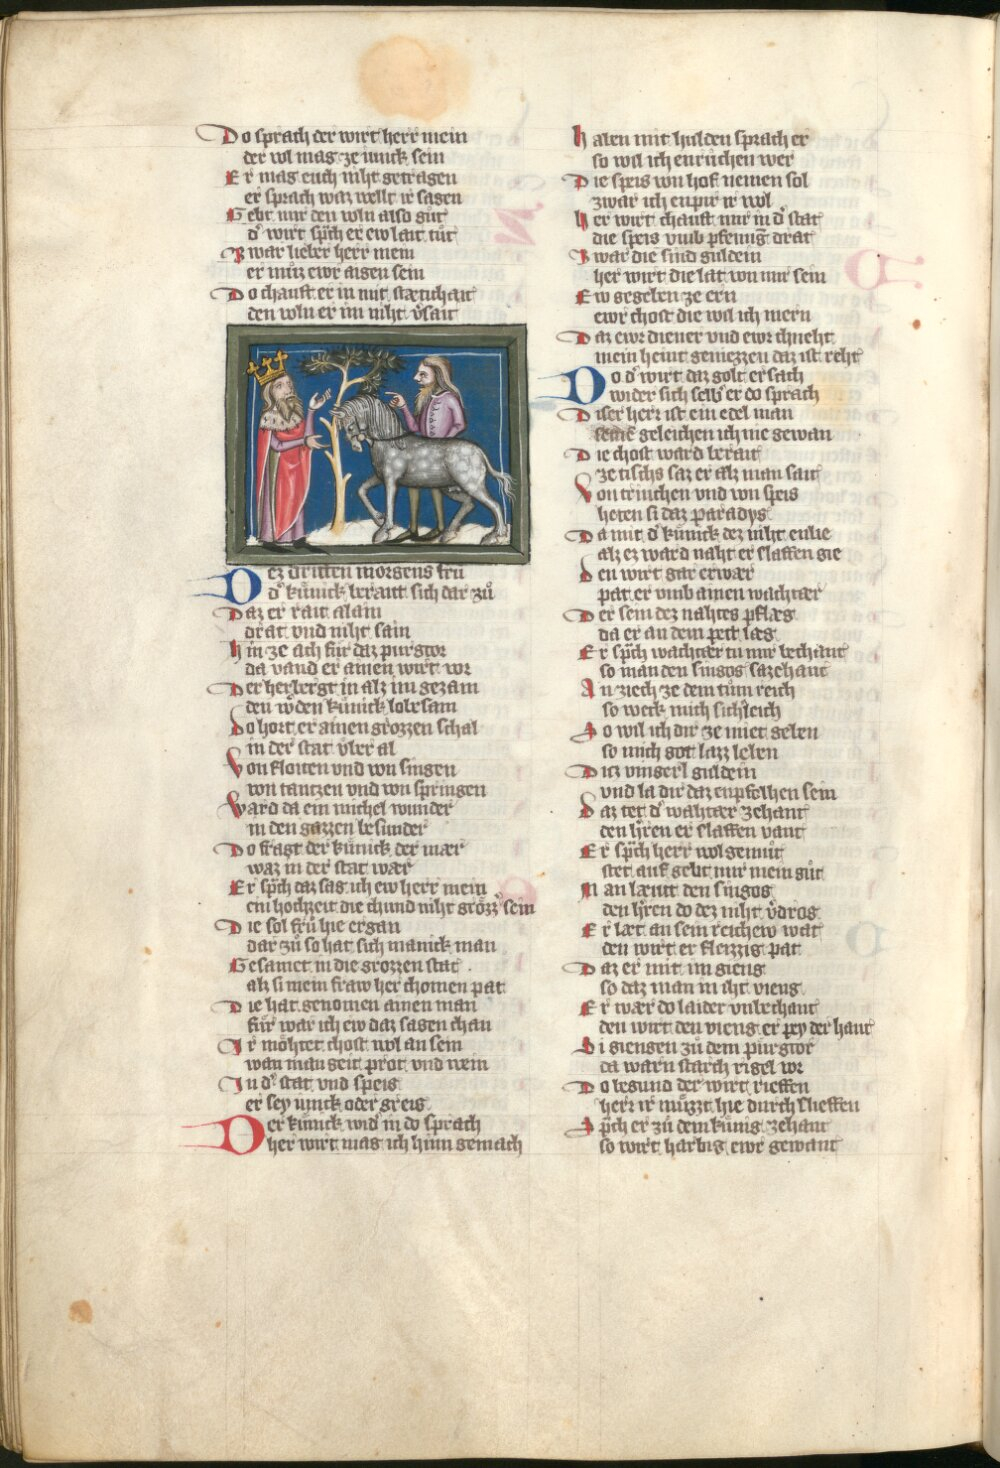 Do sprach der wirt herr mein
der vol mag ze iunck sein
Er mag euch niht getragen
er sprach waz wellt ir sagen
Gebt mir den voln also gůt
d' wirt sp͛ch er ew lait tůt
Zwar lieber herr mein
er můz ewr aigen sein
Do chauft er in mit stætichait
den voln er im niht v͛sait
Dez dritten morgens frů
d' kůnick berait sich dar zů
Daz er rait alain
drat vnd niht sain
Hin ze ach für daz purgtor
da vand er ainen wirt vor
Der herbergt in alz im gezam
den w͛den kůnick lobesam
Do hort er ainen grozzen schal
in der stat vber al
Von floiten vnd von singen
von tantzen vnd von springen
Ward da ein michel wunder
in den gazzen besunder
Do fragt der kůnick der mær
waz in der stat wær
Er sp͛ch daz sag ich ew herr mein
ein hochzeit die chund niht grözz͛ sein
Die sol frů hie ergan
dar zů so hat sich manick man
Gesamet in die grozzen stat
alz si mein fraw her chomen pat
Die hat genomen ainen man
für war ich ew daz sagen chan
Ir möhtet chost wol an sein
wan man geit prot vnd wein
In d' stat vnd speis
er sey iunck oder greis
Der kůnick wid' in do sprach
her wirt mag ich hinn gemach
Haben mit hulden sprach er
so wil ich enrůchen wer
Die speis von hof nemen sol
zwar ich enpir ir wol
Her wirt chauft mir in d' stat
die speis vmb pfening drat
Zwar die sind guldein
her wirt die lat von mir sein
Ew gegeben ze ern
ewr chost die wil ich mern
Daz ewr diener vnd ewr chneht
mein heint geniezzen daz ist reht
Do d' wirt daz golt ersach
wider sich selb' er do sprach
Diser herr ist ein edel man
seine geleichen ich nie gewan
Die chost ward berait
ze tischs saz er alz man sait
Von trinchen vnd von speis
heten si daz paradys
Da mit d' kůnick dez niht enlie
alz ez ward naht er slaffen gie
Den wirt gar erwær
pat er vmb ainen wachtær
Der sein dez nahtes pflæg
da er an dem pett læg
Er sp͛ch wachtær tu mir bechant
so man den singos sazehant
An ziech ze dem tům reich
so weck mich sich͛leich
So wil ich dir ze miet geben
so mich got lazz leben
Ditz vingerl guldein
vnd la dir daz enpfolhen sein
Daz tet d' wahtær zehant
den h͛ren er slaffen vant
Er sp͛ch herr wol gemůt
stet auf gebt mir mein gůt
Man læut den singos
den h͛ren do dez niht v͛dros
Er læt an sein reichew wat
den wirt er fleizzig pat
Daz er mit im gieng
so daz man in iht vieng
Er wær do laider vnbechant
den wirt den vieng er pey der hant
Si giengen zů dem purgtor
da warn starch rigel vor
Do begund der wirt rieffen
herr ir můzzt hie durch slieffen
Sp͛ch er zů dem kůnig zehant
so wirt harbig ewr gewant